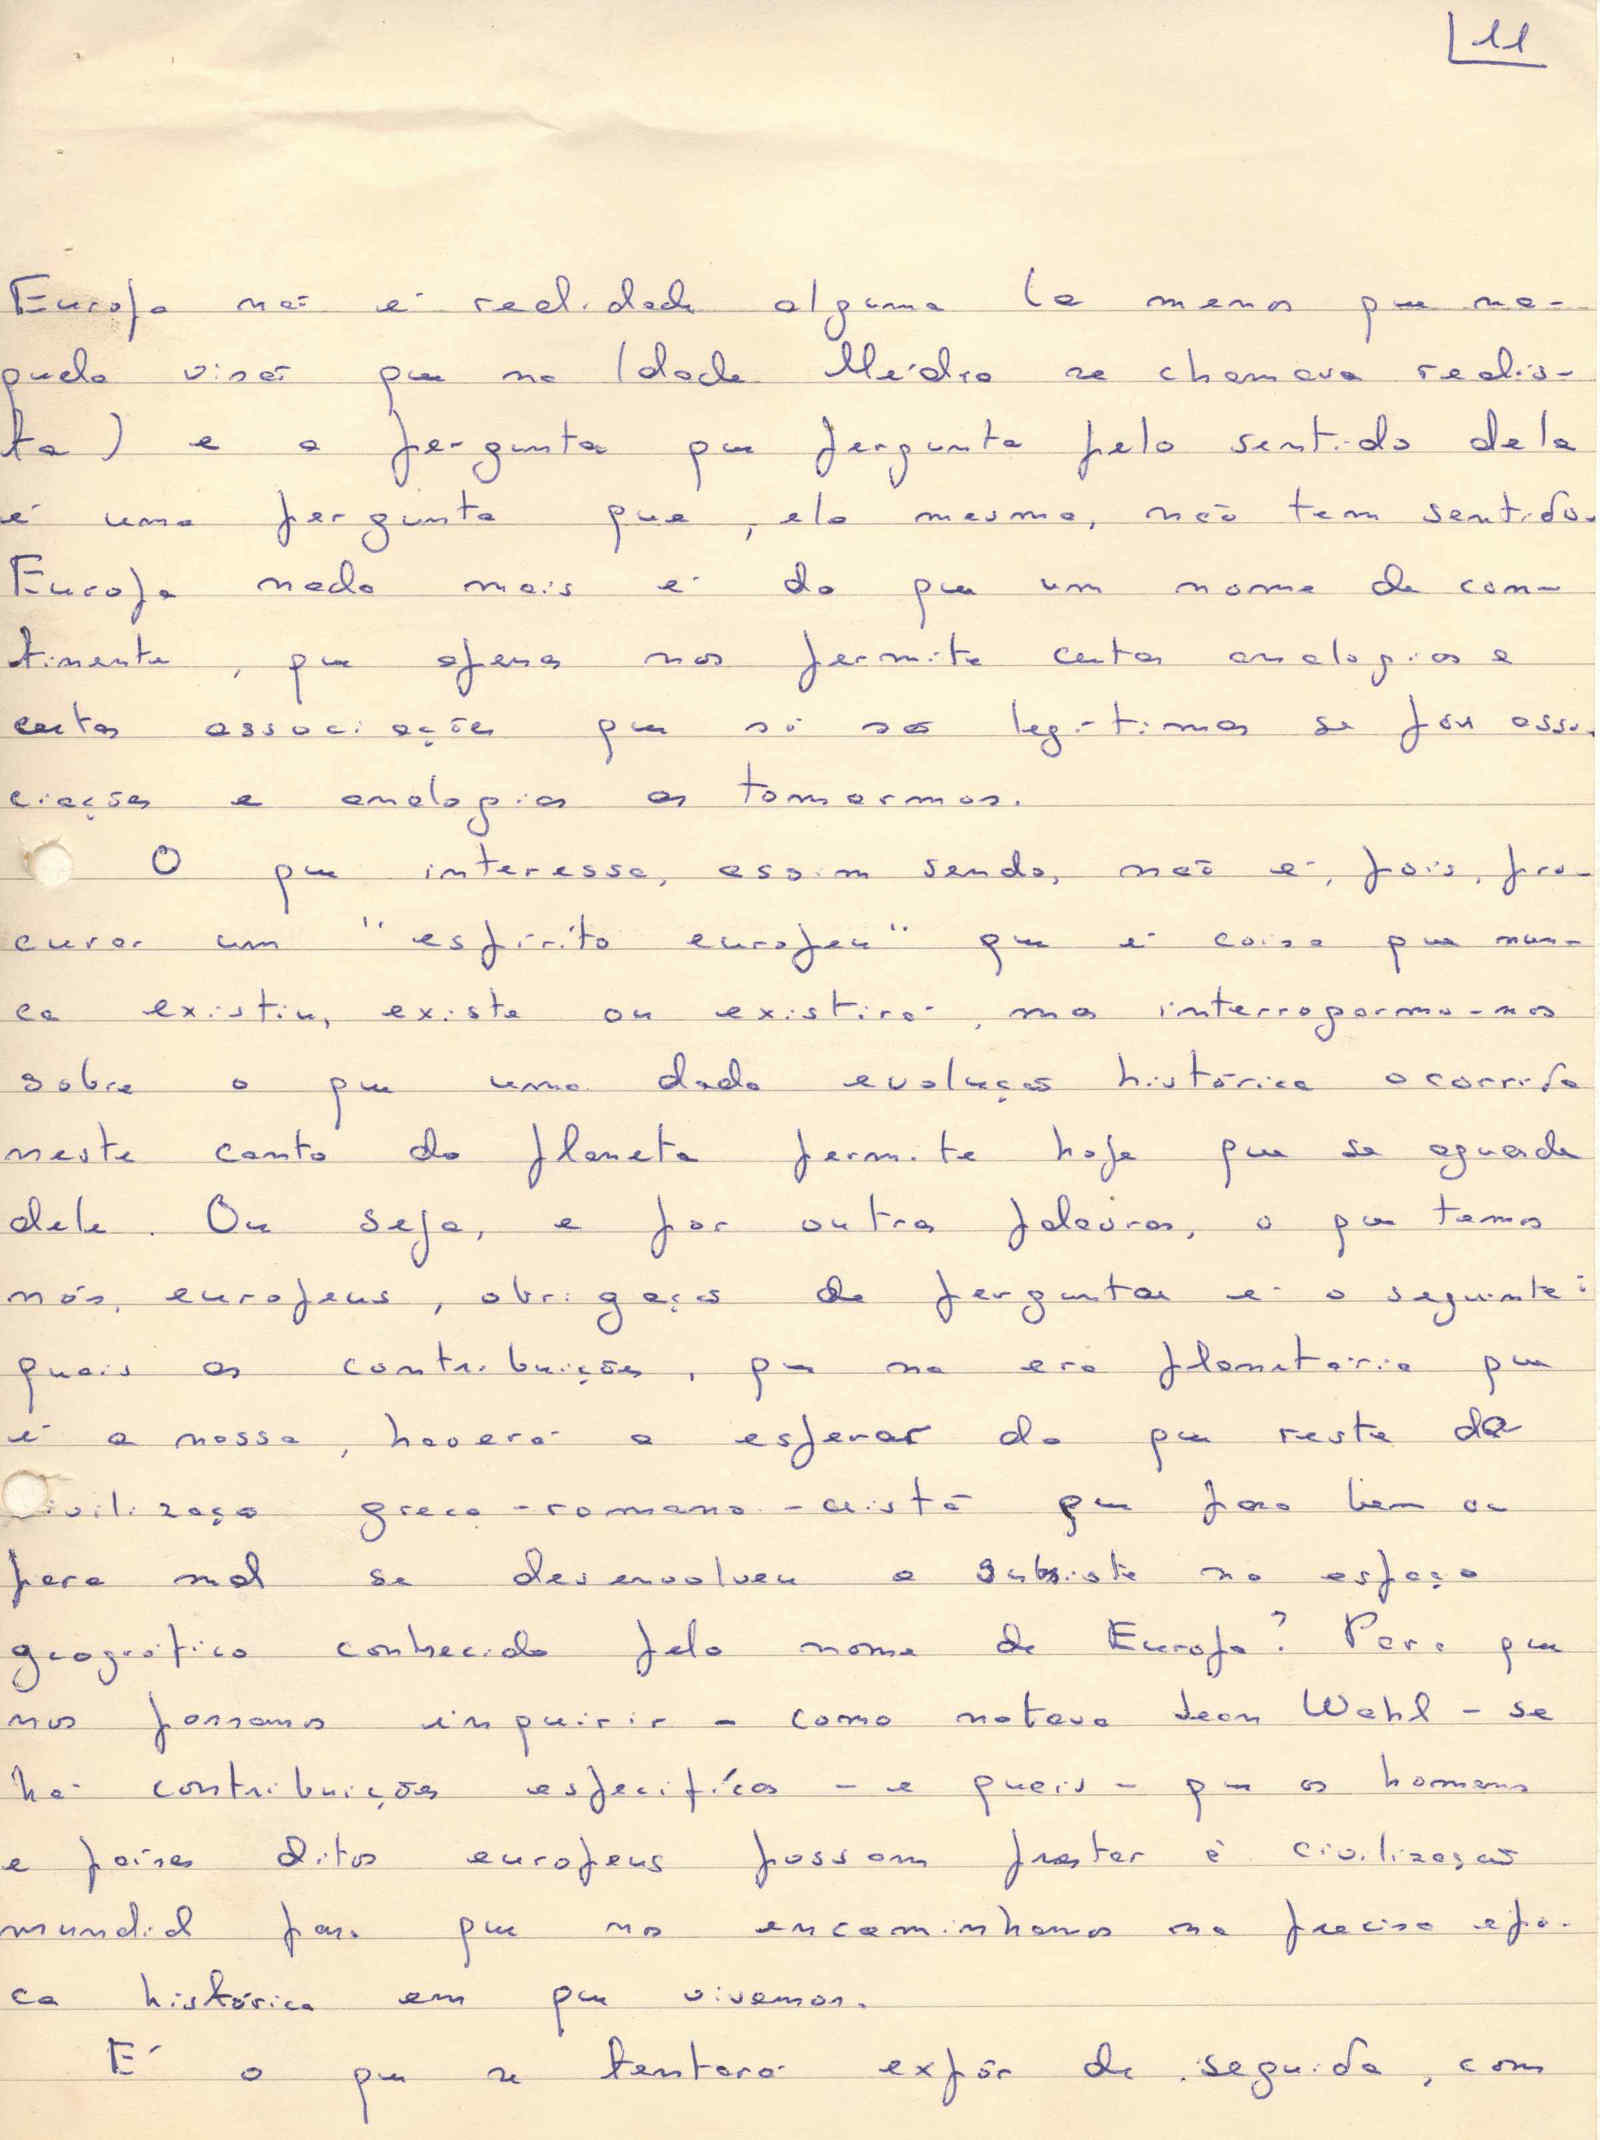 11
Europa não é realidade alguma (a menos que na-
quela visão que na Idade Média se chamava realis-
ta) e a pergunta que pergunta pelo sentido dela
é uma pergunta que, ela mesma, não tem sentido.
Europa nada mais é do que um nome de con-
tinente, que apenas nos permite certas analogias e
certas associações que só são legítimas se por asso-
ciações e analogias as tomarmos.
O que interessa, assim sendo, não é, pois, pro-
curar um "espírito europeu" que é coisa que nun-
ca existiu, existe ou existirá, mas interrogarmo-nos
sobre o que uma dada evolução histórica ocorrida
neste canto do planeta permite hoje que se aguarde
dele. Ou seja, e por outras palavras, o que temos
nós, europeus, obrigação de perguntar é o seguinte:
quais as contribuições, que na era planetária que
é a nossa, haverá a esperar do que resta da
civilização greco-romano-cristã que para bem ou
para mal se desenvolveu e subsiste no espaço
geográfico conhecido pelo nome de Europa? Para que
nos possamos inquirir - como notava Jean Wahl - se
há contribuições específicas - e quais - que os homens
e países ditos europeus possam prestar à civilização
mundial para que nos encaminhamos na precisa épo-
ca histórica em que vivemos.
É o que se tentará expôr de seguida, com